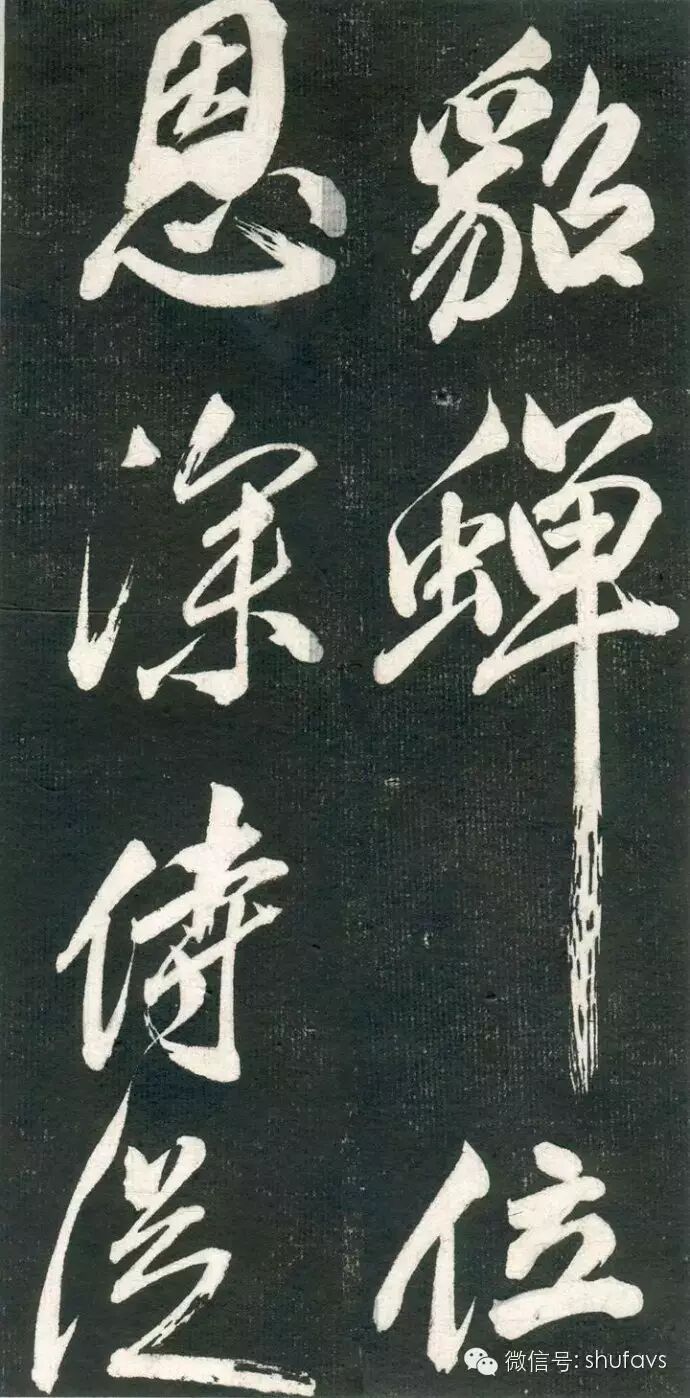 貂蟬位
恩深侍從
微信号: shufavs